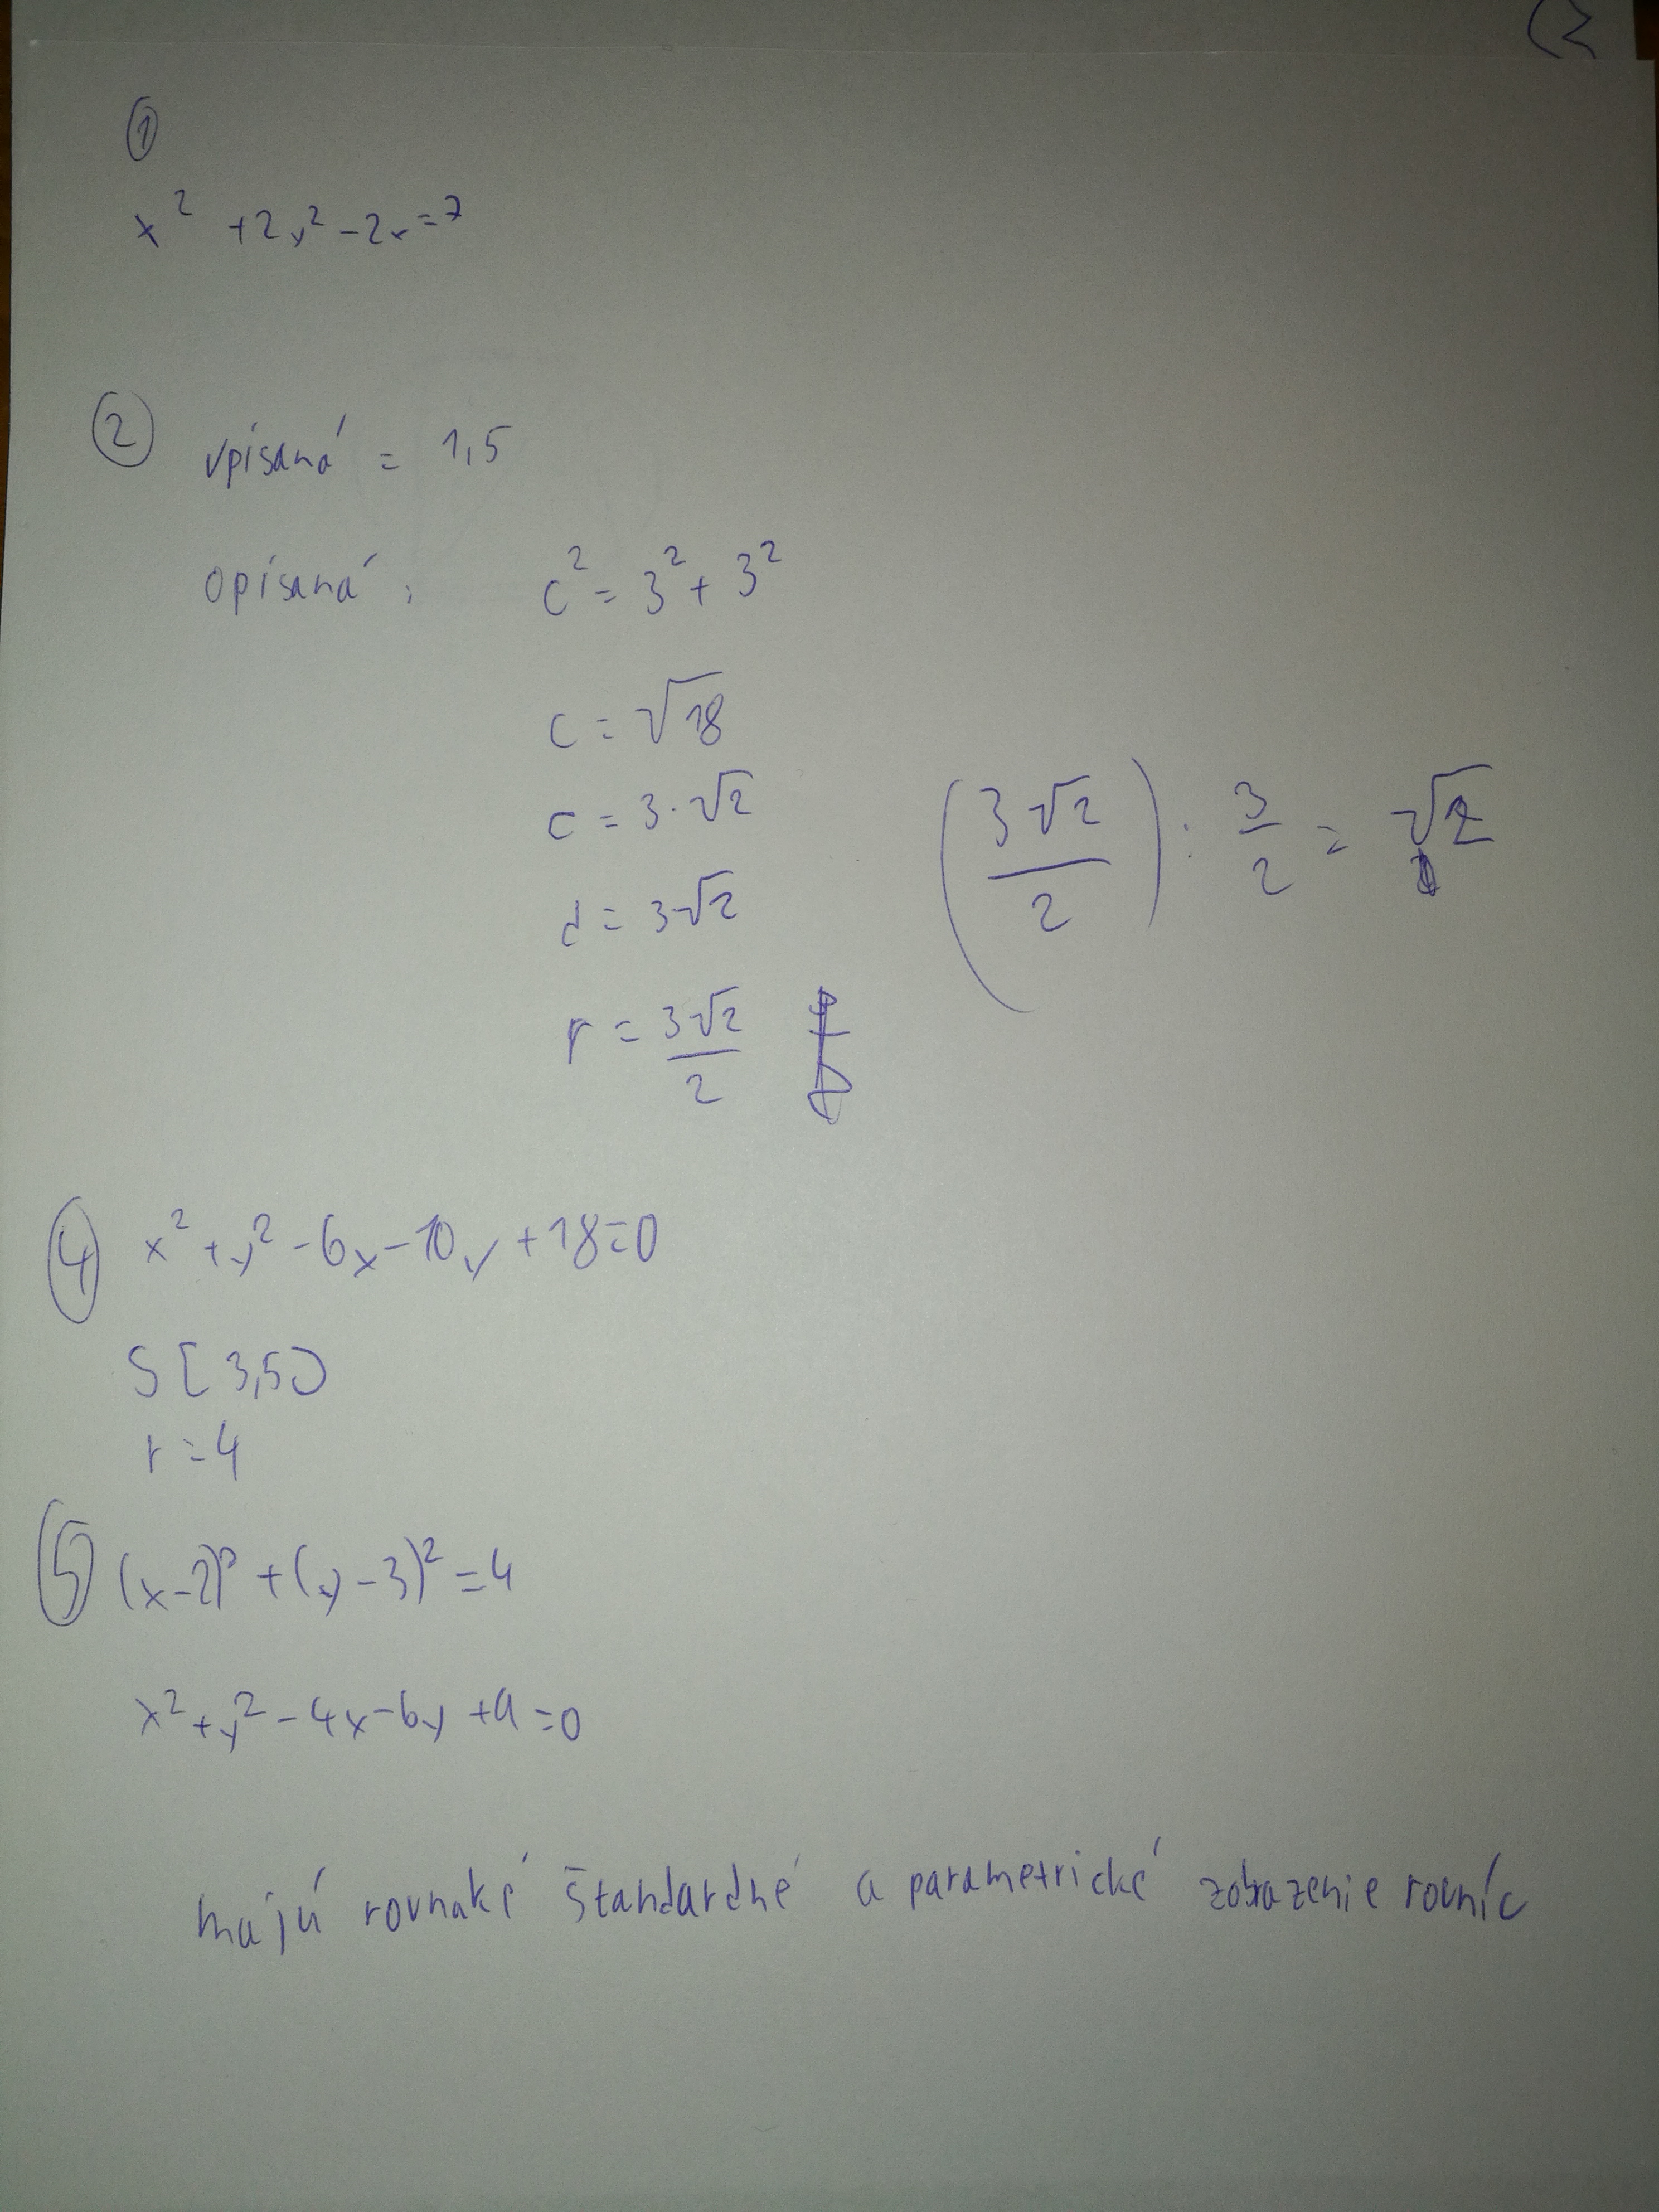 ①
x² +2y²-2x=7
② vpísaná = 1,5
opísaná: c² = 3² + 3²
c = √18
c = 3·√2
d = 3√2
(3√2/2) : 3/2 = √2
r = 3√2/2
④ x²+y²-6x-10y+18=0
S[3,5]
r=4
⑤ (x-2)²+(y-3)²=4
x²+y²-4x-6y+9=0
majú rovnaké štandardné a parametrické zobrazenie rovníc